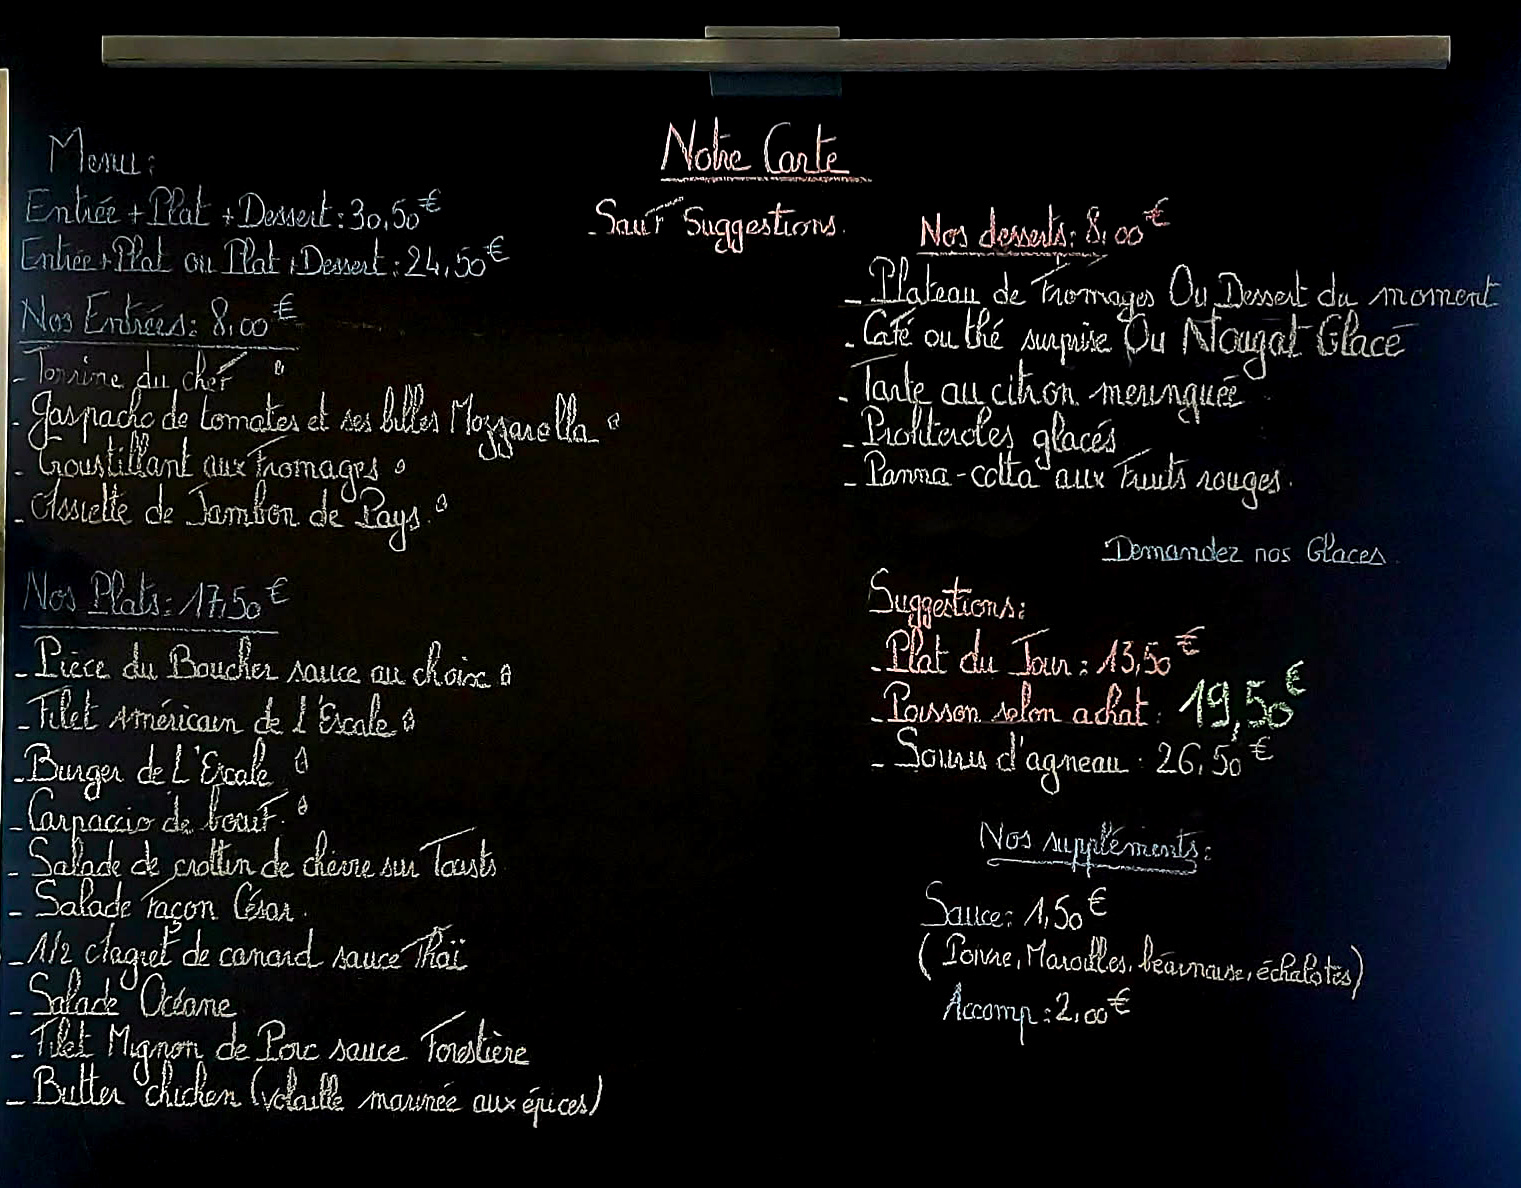 Notre Carte
Sauf Suggestions.
Menu:
Entrée + Plat + Dessert: 30,50€
Entrée + Plat ou Plat + Dessert: 24,50€
Nos Entrées: 8,00€
- Terrine du chef
- Gaspacho de tomates et ses billes Mozzarella
- Croustillant aux Fromages
- Assiette de Jambon de Pays.
Nos Plats: 17,50€
- Pièce du Boucher sauce au choix
- Filet Américain de l'Escale
- Burger de L'Escale
- Carpaccio de boeuf.
- Salade de crottin de chèvre sur Toasts
- Salade Façon César.
- 1/2 Magret de canard sauce Thaï
- Salade Océane
- Filet Mignon de Porc sauce Forestière
- Butter chicken (volaille marinée aux épices)
Nos desserts: 8,00€
- Plateau de Fromages Ou Dessert du moment
- Café ou thé surprise Ou Nougat Glacé
- Tarte au citron meringuée
- Profiteroles glacés
- Panna-cotta aux Fruits rouges.
Demandez nos Glaces.
Suggestions:
- Plat du Jour: 13,50€
- Poisson selon achat: 19,50€
- Souris d'agneau: 26,50€
Nos suppléments:
Sauce: 1,50€
(Poivre, Maroilles, béarnaise, échalotes)
Accomp: 2,00€